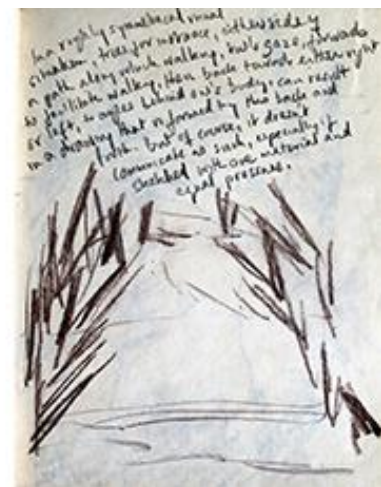 In a roughly symmetrical visual
situation, trees for instance, either side of
a path along which walking, one's gaze, forwards
to facilitate walking, then back towards either right
or left, so miles behind one's body, can result
in a drawing that is formed by this back and
forth. But of course, it doesn't
communicate as such, especially if
sketched with one material and
equal pressure.